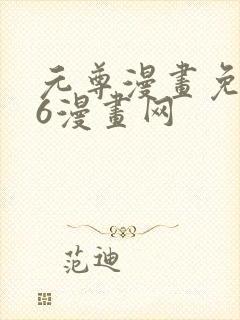 元尊漫畫免
6漫畫网
范迪